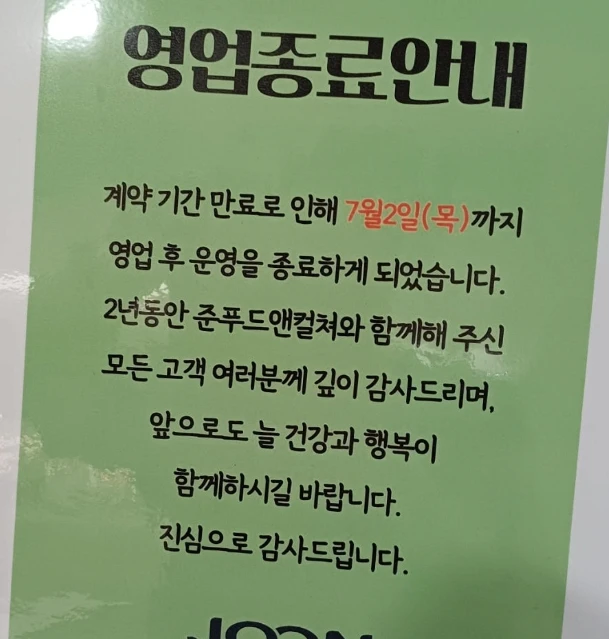 영업종료안내
계약 기간 만료로 인해 7월2일(목)까지
영업 후 운영을 종료하게 되었습니다.
2년동안 준푸드앤컬쳐와 함께해 주신
모든 고객 여러분께 깊이 감사드리며,
앞으로도 늘 건강과 행복이
함께하시길 바랍니다.
진심으로 감사드립니다.